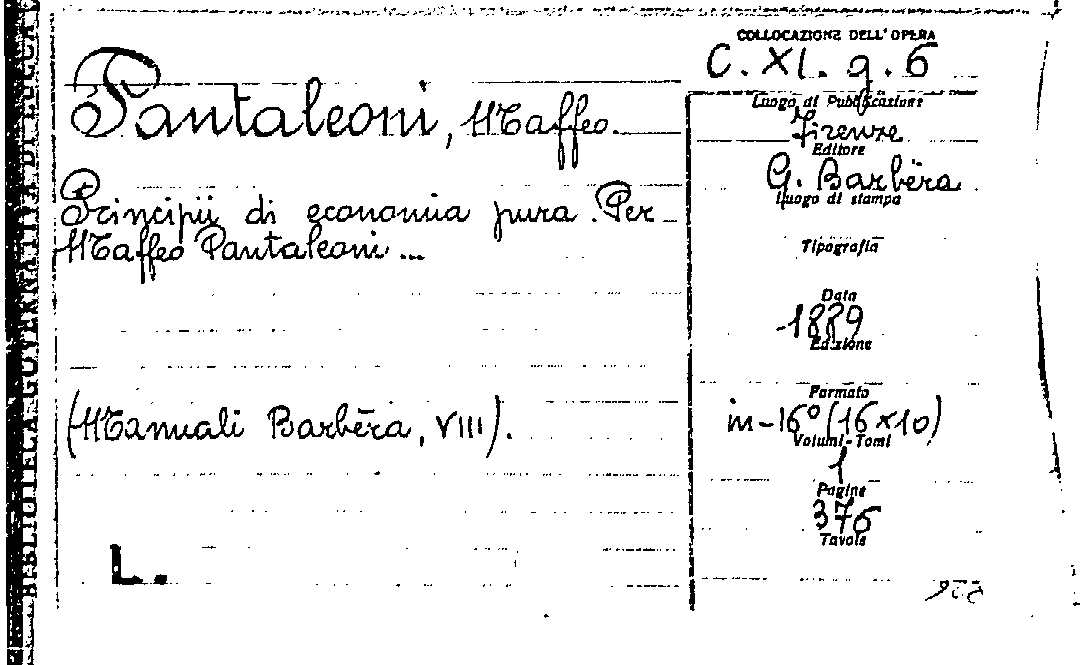 BIBLIOTECA GOVERNATIVA DI LUCCA
COLLOCAZIONE DELL'OPERA
C. XI. g. 6
Pantaleoni, Maffeo.
Principii di economia pura. Per
Maffeo Pantaleoni ...
(Manuali Barbèra, VIII).
L.
Luogo di Pubblicazione
Firenze
Editore
G. Barbèra
Luogo di stampa
Tipografia
Data
1889
Edizione
Formato
in-16° (16×10)
Volumi-Tomi
1
Pagine
376
Tavole